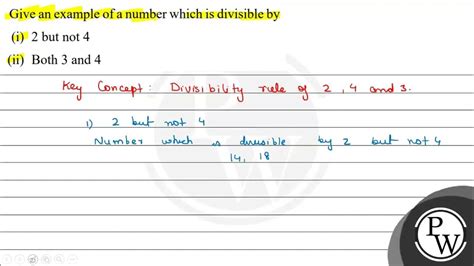 Give an example of a number which is divisible by
(i) 2 but not 4
(ii) Both 3 and 4
Key Concept: Divisibility rule of 2, 4 and 3.
i) 2 but not 4
Number which is divisible by 2 but not 4
14, 18
PW
PW